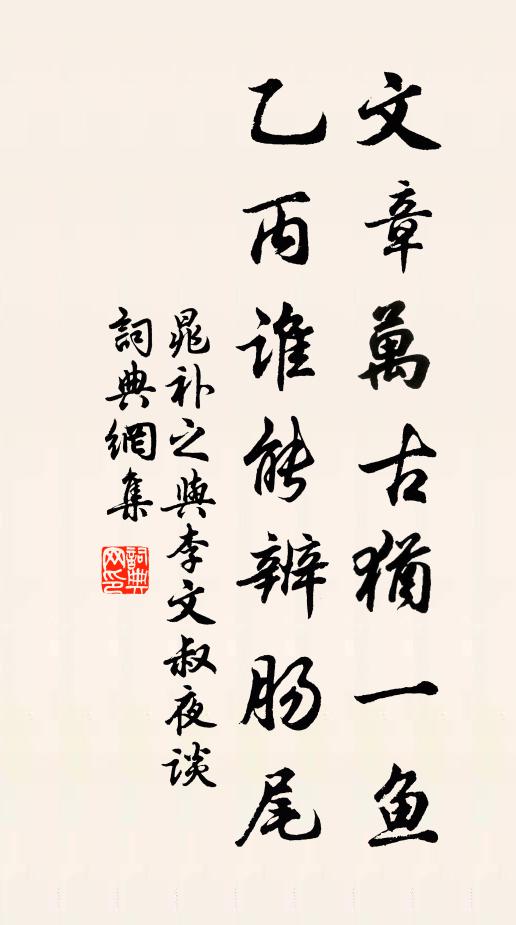 文章萬古猶一魚
乙丙誰能辨肠尾
晁补之與李文叔夜谈
詞典網集
詞典网印